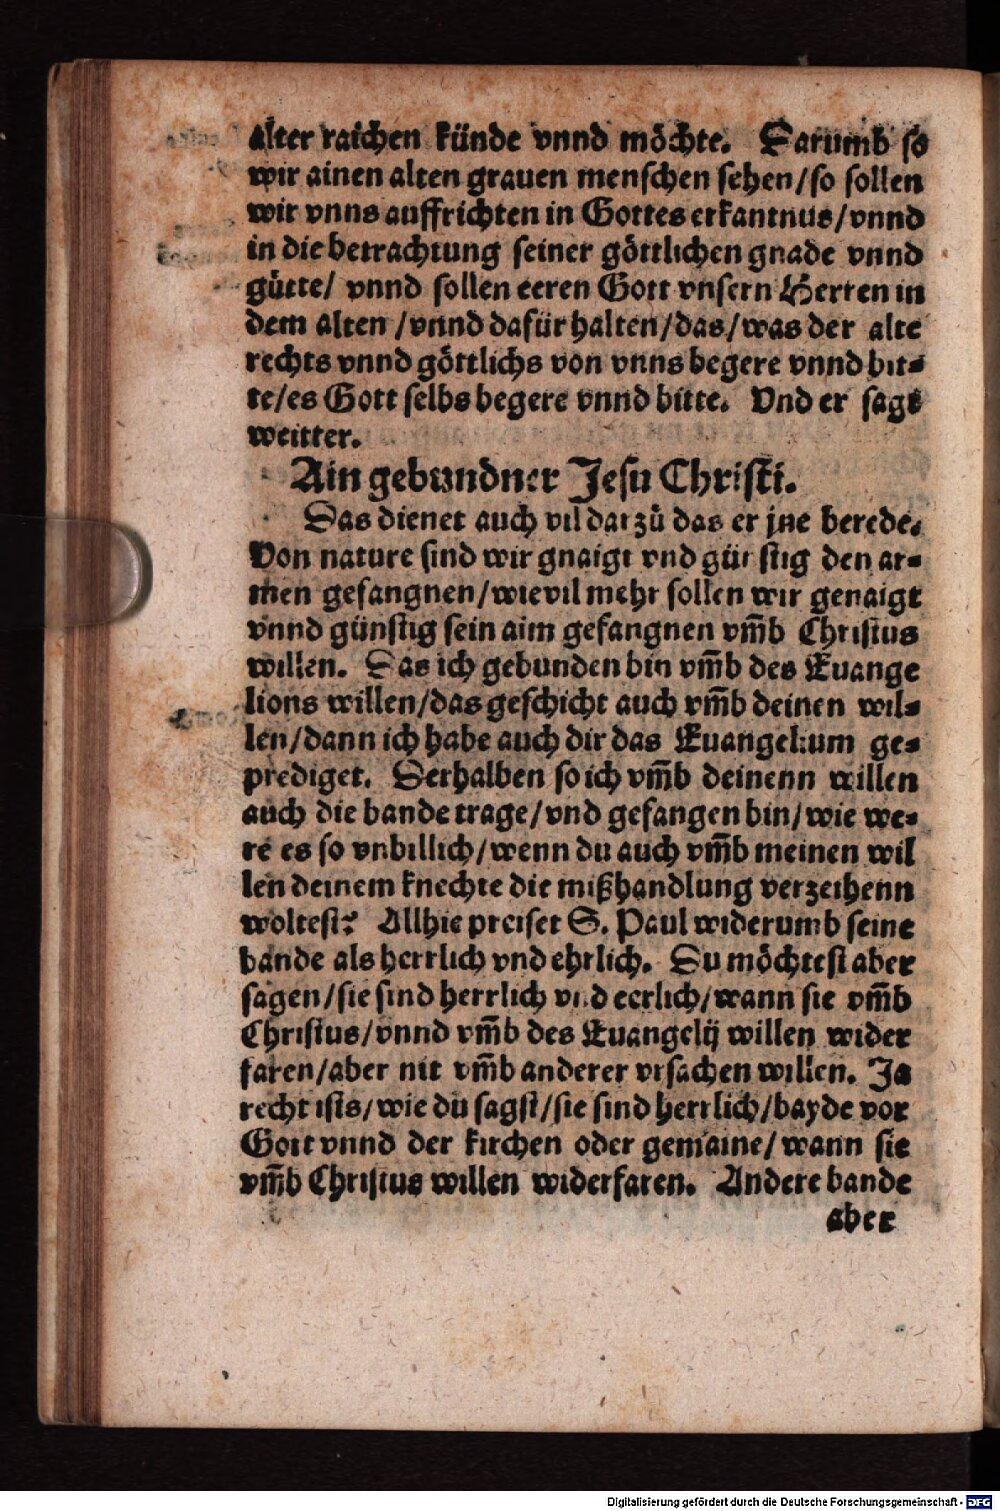 alter raichen künde vnnd möchte. Darumb so
wir ainen alten grauen menschen sehen/so sollen
wir vnns auffrichten in Gottes erkantnus/vnnd
in die betrachtung seiner göttlichen gnade vnnd
gütte/ vnnd sollen eeren Gott vnsern Herren in
dem alten /vnnd dafür halten/das/was der alte
rechts vnnd göttlichs von vnns begere vnnd bit⸗
te/es Gott selbs begere vnnd bitte. Vnd er sagt
weitter.
Ain gebundner Jesu Christi.
Das dienet auch vil darzů das er jne berede.
Von nature sind wir gnaigt vnd günstig den ar⸗
men gefangnen/wievil mehr sollen wir genaigt
vnnd günstig sein aim gefangnen vm̃b Christus
willen. Das ich gebunden bin vm̃b des Euange
lions willen/das geschicht auch vm̃b deinen wil⸗
len/dann ich habe auch dir das Euangelium ge⸗
prediget. Derhalben so ich vm̃b deinenn willen
auch die bande trage/vnd gefangen bin/wie we⸗
re es so vnbillich/wenn du auch vm̃b meinen wil
len deinem knechte die mißhandlung verzeihenn
woltest? Allhie preiset S. Paul widerumb seine
bande als herrlich vnd ehrlich. Du möchtest aber
sagen/sie sind herrlich vnd eerlich/wann sie vm̃b
Christus/vnnd vm̃b des Euangelij willen wider
faren/aber nit vm̃b anderer vrsachen willen. Ja
recht ists/wie du sagst/sie sind herrlich/bayde vor
Gott vnnd der kirchen oder gemaine/wann sie
vm̃b Christus willen widerfaren. Andere bande
aber
Digitalisierung gefördert durch die Deutsche Forschungsgemeinschaft - DFG